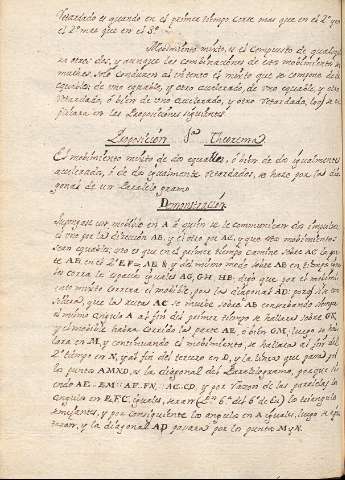 Retardado es quando en el primer tiempo corre mas que en el 2º y en
el 2º mas que en el 3º
Movimiento mixto, es el compuesto de qualesquie
ra otros dos, y aunque las combinaciones de estos mobimientos
muchas. Solo conducen al intento el mixto que se compone de
equable, de uno equable, y otro acelerado, de uno equable, y otro
retardado, ó bien de uno acelerado, y otro retardado, los se ex
plicara en las Proposiciones siguientes
Proposicion 1ª Theorema
El mobimiento mixto de dos equables, ó bien de dos igualmente
acelerados, ó de dos igualmente retardados, se hace por la dia
gonal de un Paralelogramo
Demonstracion
Supongase un mobible en A á quien se le comunican dos impulsos
el uno por la direccion AB, y el otro por AC, y que sus mobimientos
sean equables; esto es que en el primer tiempo camine sobre AC la par
te AE, en el 2º EF = AE, & y del mismo modo sobre AB en tiempos igua
les corra los espacios iguales AG, GH, HB. digo que por el mobimi
ento mixto correra el mobible, por la diagonal AD: para
sidera, que la recta AC se muebe sobre AB conserbando siempre
el mismo angulo A al fin del primer tiempo se hallara sobre GK
y el mobible habra corrido la parte AE, ó bien GM, luego se ha
lara en M, y continuando el mobimiento, se hallara al fin del
2º tiempo en N, y al fin del tercero en D, y la linea que pasa por
los puntos AMND, es la diagonal del Paralelogramo, porque si
endo AE = EM :: AF. FN :: AC. CD, y por razon de las paralelas
angulos en E, F, C, iguales, seran (Pr. 6ª del 6º de Eu) los triangulos
semejantes, y por consiguiente los angulos en A iguales, luego se
taran, y la diagonal AD pasara por los puntos M y N.